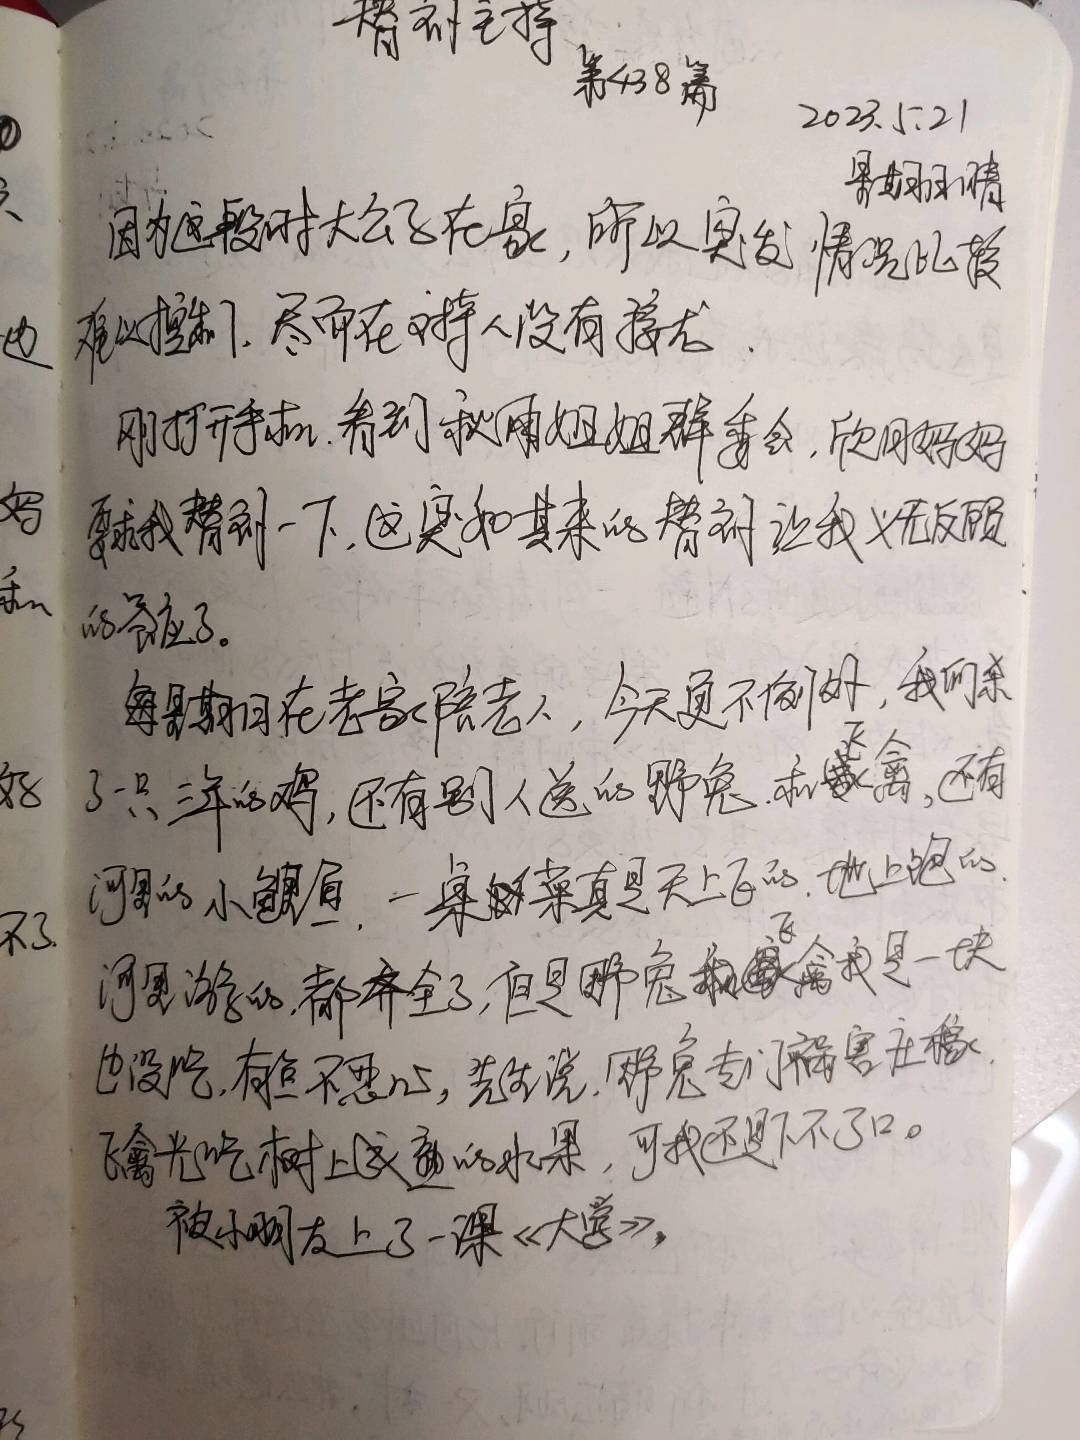 替剅主持
第438篇
2023.5.21
星期日晴
因为这段时大公子在家，所以突发情况比较
难以控制，尽而在主持人没有接龙.
刚打开手机.看到秋雨姐姐群委会，欣月妈妈
要求我替一下，这突如其来的替让我义无反顾
的答应了。
每星期日在老家陪老人，今天更不例外，我们杀
了一只三年的鸡，还有别人送的野兔.和飞禽，还有
河里的小鲫鱼，一桌菜真是天上飞的.地上跑的.
河里游的.都齐全了，但是野兔飞禽我是一块
也没吃，有些不忍心，先生说.野兔专门祸害庄稼.
飞禽光吃树上成熟的水果，可我还是下不了口。
被小朋友上了一课《大学》，
也
妈
和
好
不了.